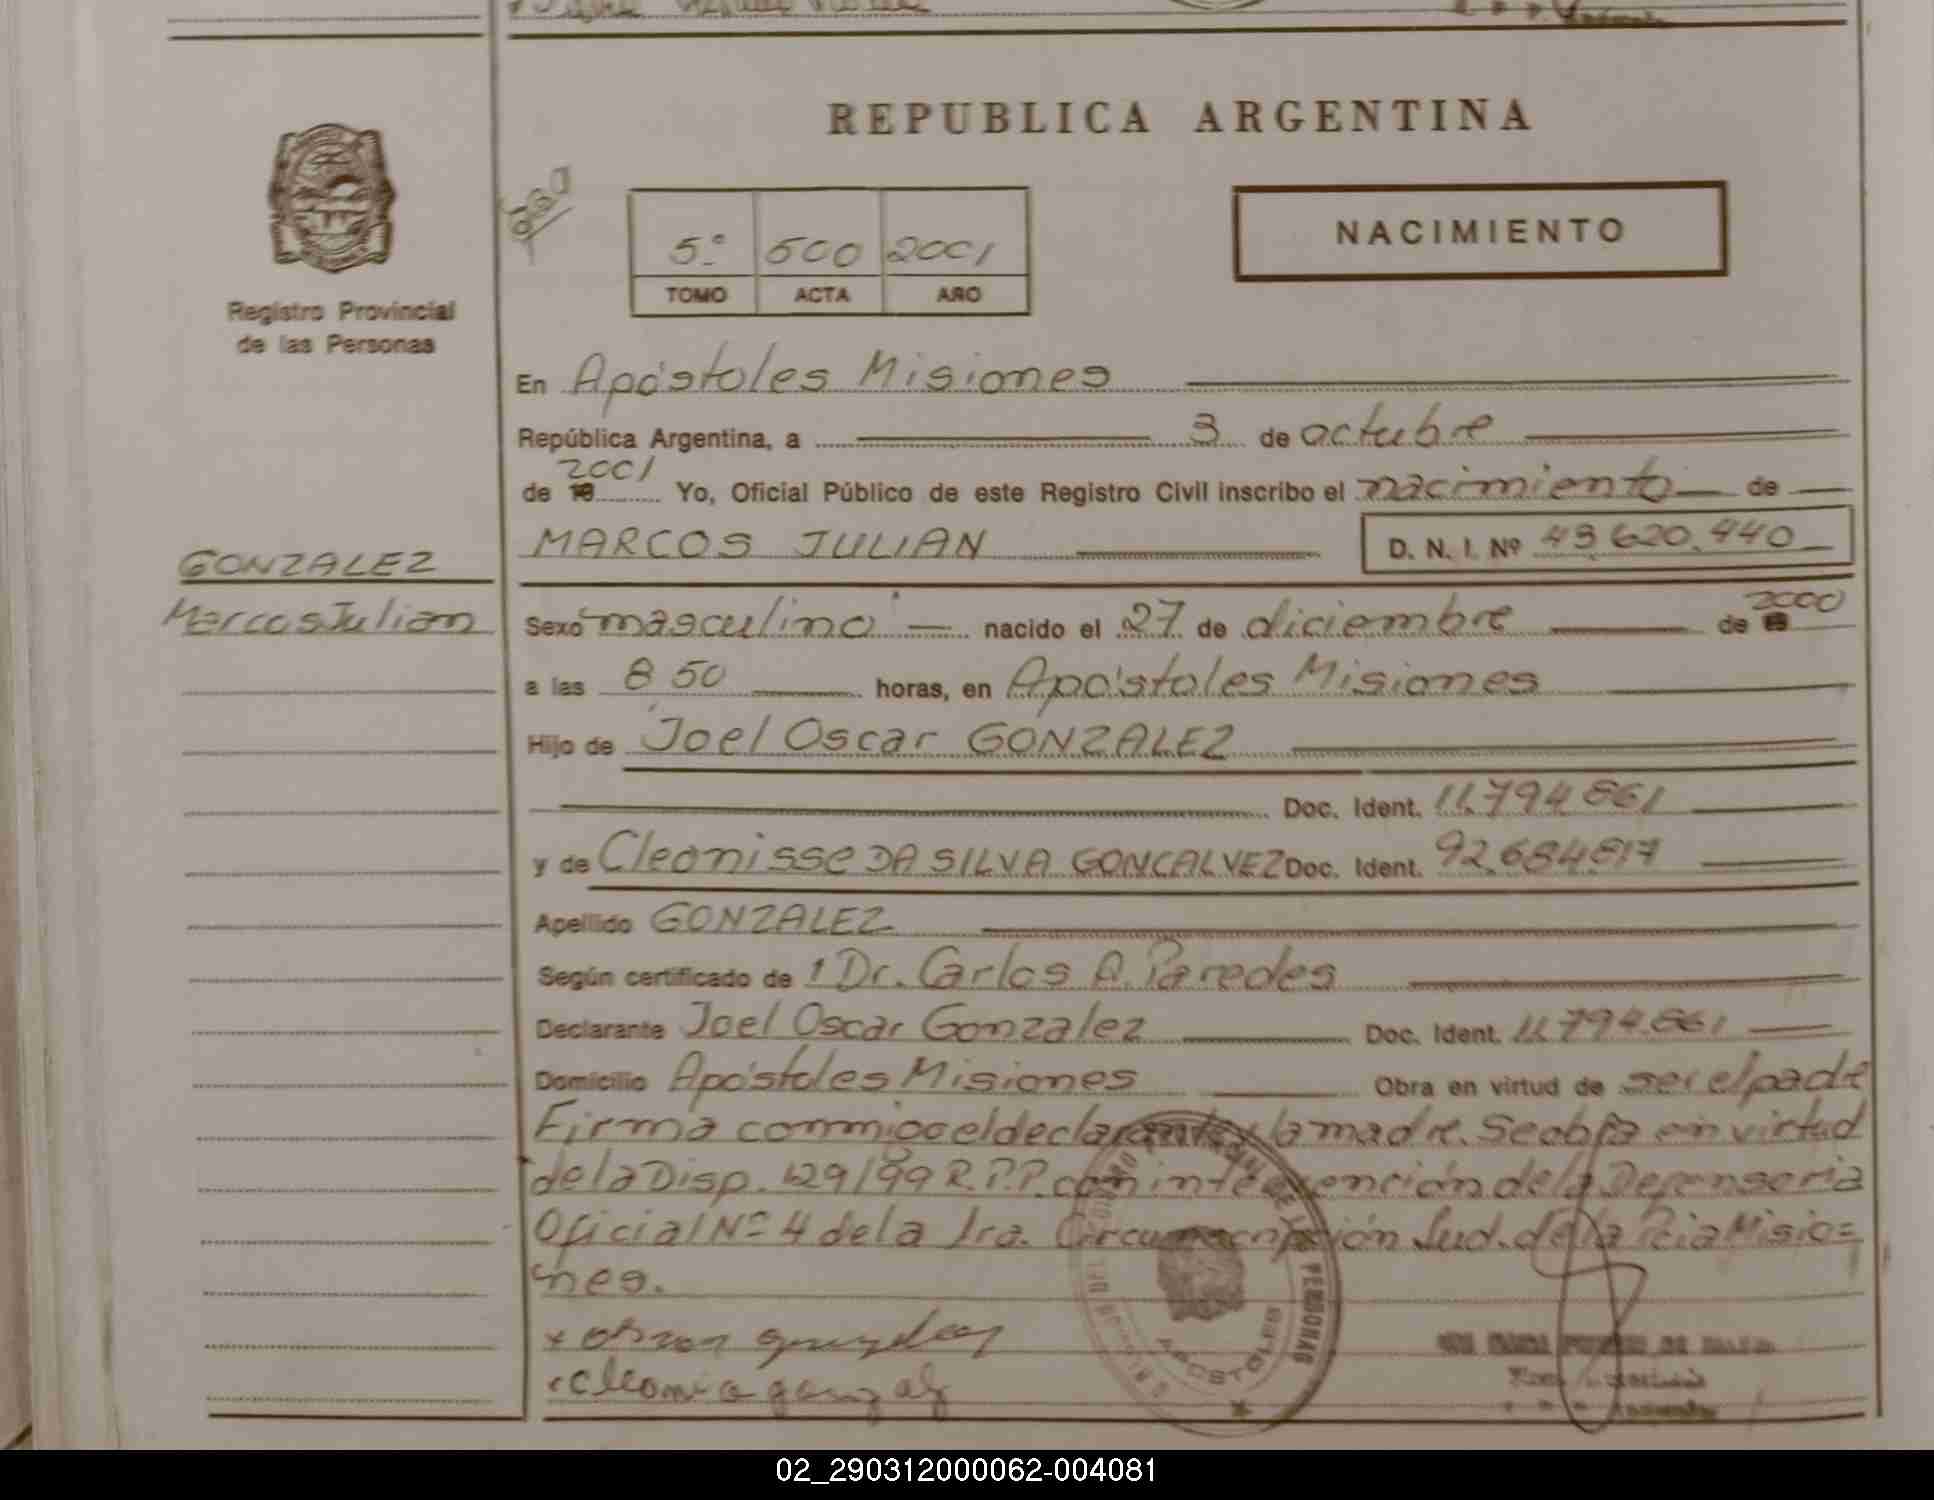 REPUBLICA ARGENTINA
5º 500 2001
TOMO ACTA AÑO
NACIMIENTO
Registro Provincial
de las Personas
En Apóstoles Misiones
República Argentina, a 3 de octubre
2001
de 19 Yo, Oficial Público de este Registro Civil inscribo el nacimiento de
MARCOS JULIAN D. N. I. Nº 43.620.440
GONZALEZ
Marcos Julian
Sexo masculino nacido el 27 de diciembre de 2000
a las 8 50 horas, en Apóstoles Misiones
Hijo de Joel Oscar GONZALEZ
Doc. Ident. 11.794.861
y de Cleonisse DA SILVA GONCALVEZ Doc. Ident. 92.684.817
Apellido GONZALEZ
Según certificado de 1 Dr. Carlos A. Paredes
Declarante Joel Oscar Gonzalez Doc. Ident. 11.794.861
Domicilio Apóstoles Misiones Obra en virtud de ser el padre
Firma conmigo el declarante y la madre. Se obra en virtud
de la Disp. 129/99 R.P.P. con intervención de la Defensoria
Oficial Nº 4 de la 1ra. Circunscripción Jud. de la Pcia Misio=
nes.
APOSTOLES
02_290312000062-004081